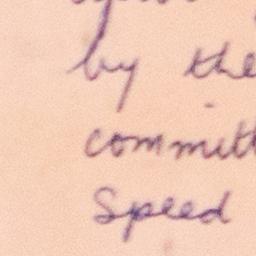 by the
committ
Speed